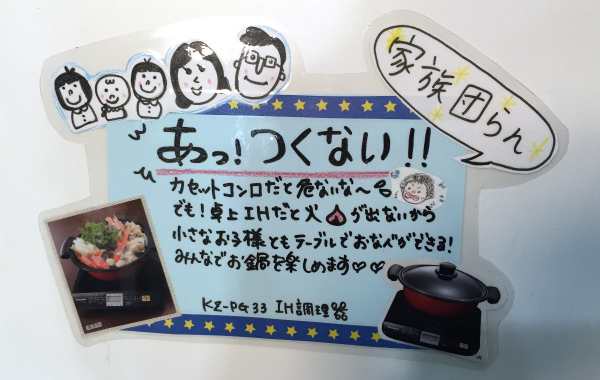 家族団らん
あっ!つくない!!
カセットコンロだと危ないな〜
でも!卓上IHだと火が出ないから
小さなお子様ともテーブルでおなべができる!
みんなでお鍋を楽しめます♡♡
KZ-PG33 IH調理器